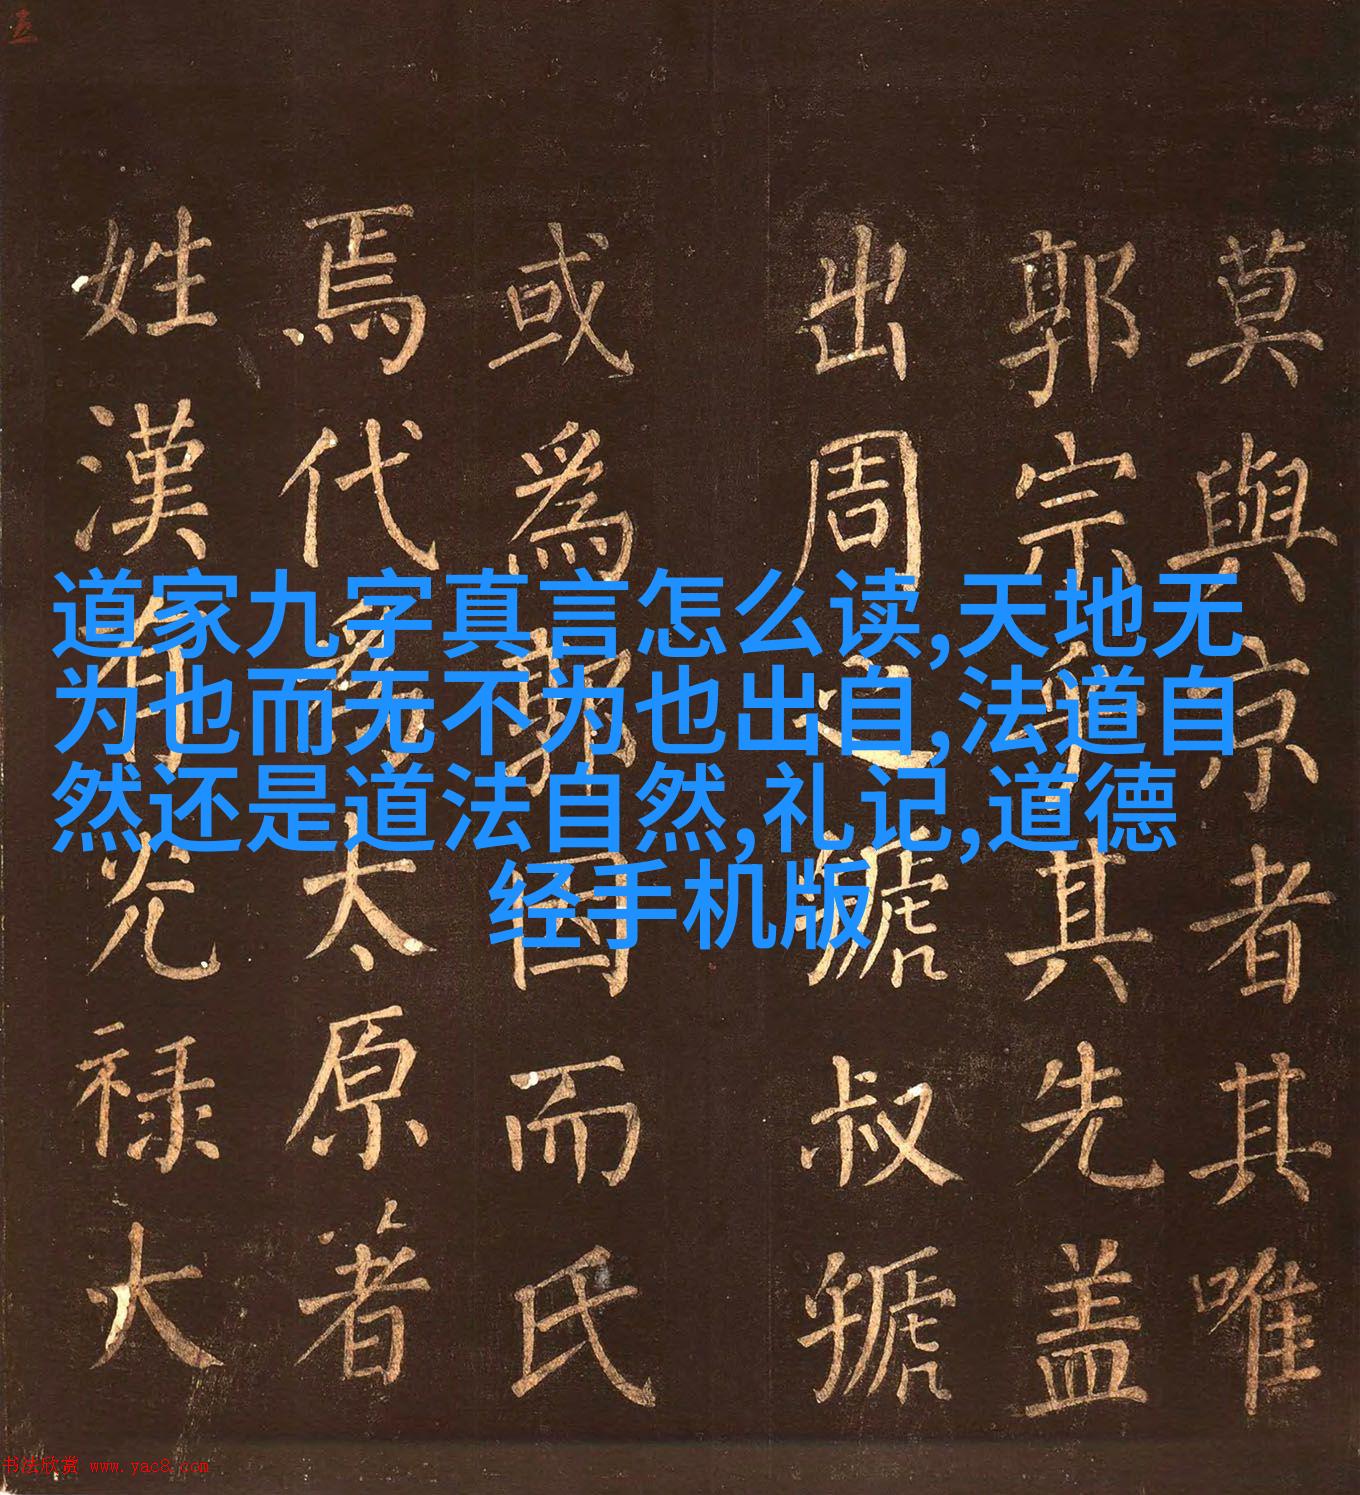 莫與京者其唯
郭宗乎其先盖
出周之虢叔虢
或為郭因而氏
焉代為太原著
姓漢有光禄大
道家九字真言怎么读,天地无
为也而无不为也出自,法道自
然还是道法自然,礼记,道德
经手机版
书法欣赏 www.yac8.com